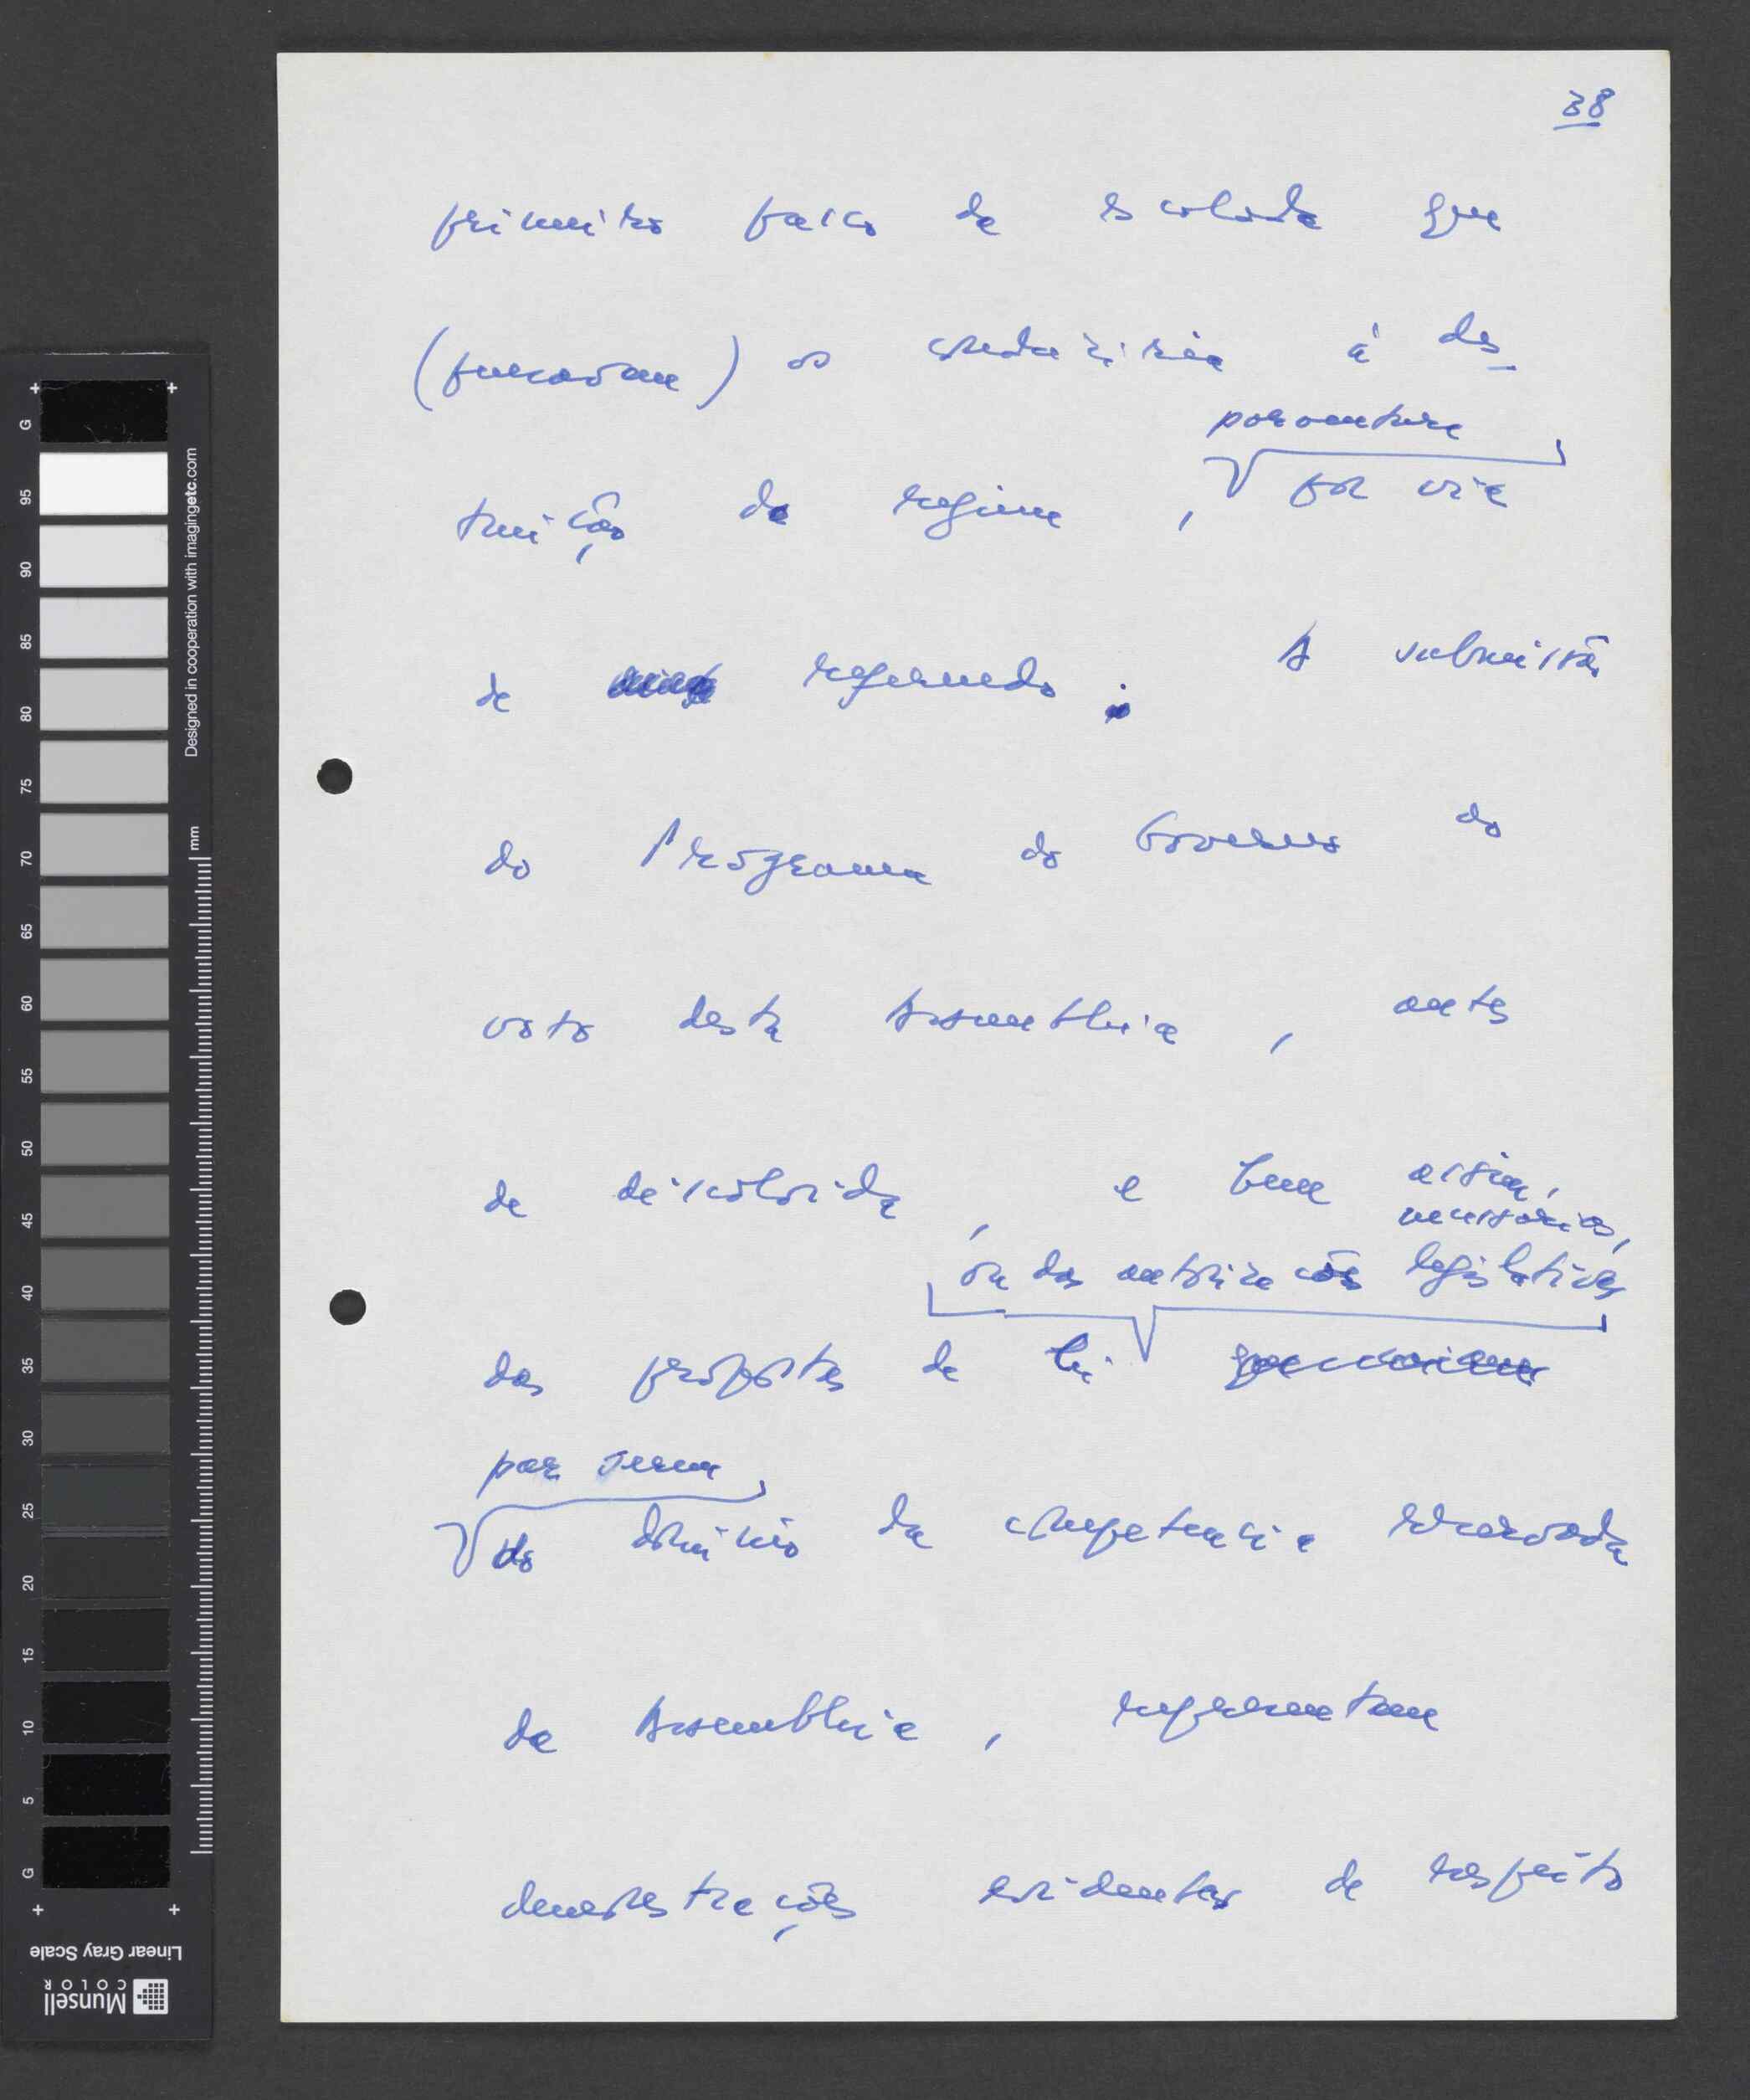 38
primeiro passo da escalada que
(pensavam) os conduziria à des-
porventura
truição do regime, por via
de referendo. A submissão
do Programa do Governo ao
voto desta Assembleia, antes
de discutida, e bem assim,
necessárias,
ou das autorizações legislativas
das propostas de lei
por serem
do domínio da competência reservada
da Assembleia, representam
demonstrações evidentes de respeito
G 95 90 85 80 75 70 65 60 55 50 45 40 35 30 25 20 15 10 5 G
Designed in cooperation with imagingetc.com
mm
Linear Gray Scale
Munsell
COLOR